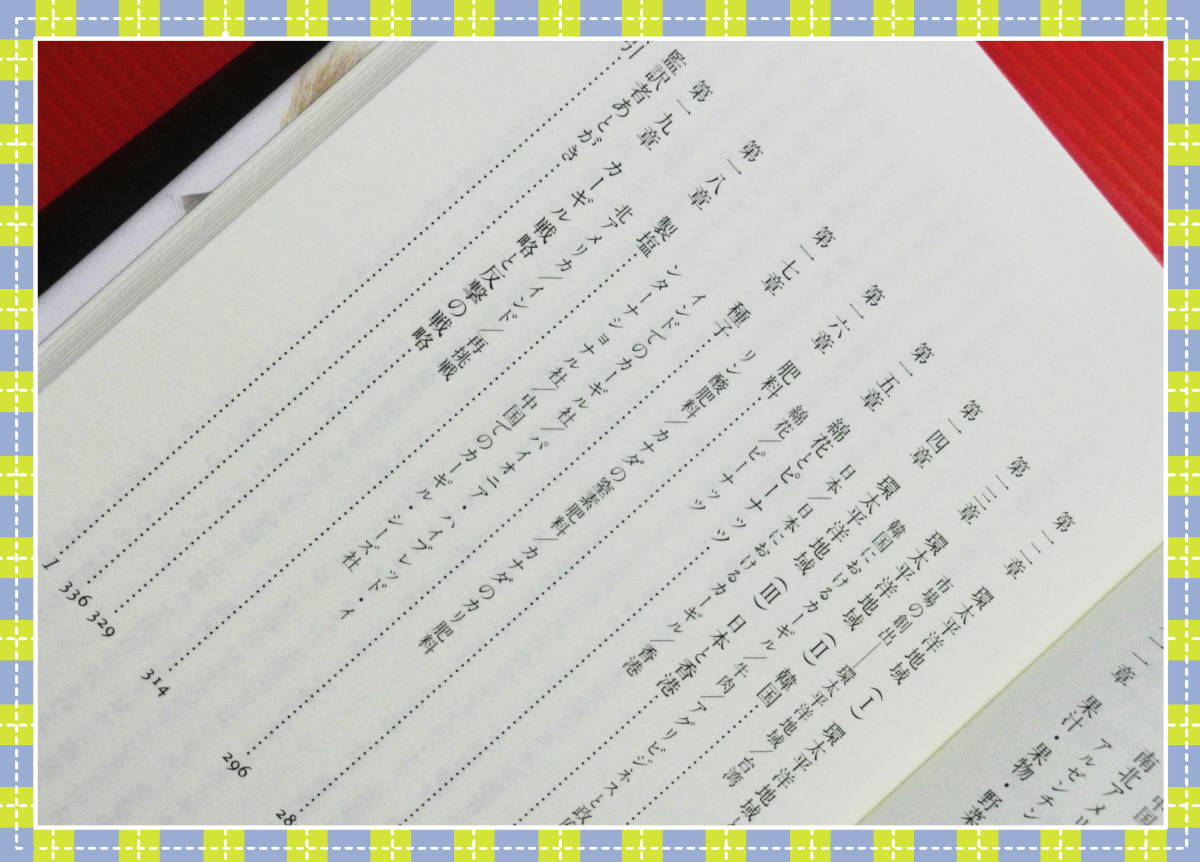 南北アメリ
一一章 果汁・果物・野菜
アルゼンチン
第一二章 環太平洋地域（Ⅰ）環太平洋地域と
市場の創出――環太平洋地域/台湾
第一三章 環太平洋地域（Ⅱ）韓国
韓国におけるカーギル/牛肉/アグリビジネスと政
第一四章 環太平洋地域（Ⅲ）日本と香港
日本/日本におけるカーギル/香港
第一五章 綿花とピーナッツ
綿花/ピーナッツ
第一六章 肥料
リン酸肥料/カナダの窒素肥料/カナダのカリ肥料
28
第一七章 種子
インドでのカーギル社/パイオニア・ハイブレッド・イ
ンターナショナル社/中国でのカーギル・シーズ社
296
第一八章 製塩
北アメリカ/インド/再挑戦
314
第一九章 カーギル戦略と反撃の戦略
329
監訳者あとがき
336
引
1